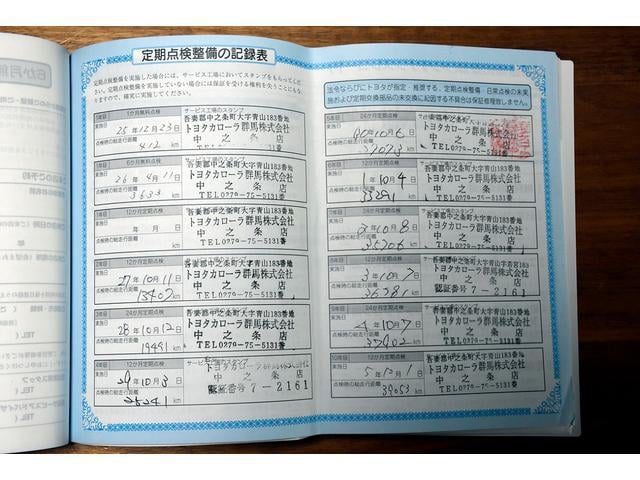 定期点検整備の記録表
定期点検整備を実施した場合には、サービス工場においてスタンプをもらってください。
定期点検整備を実施していない場合には保証を受ける権利を失うことにもなりますので、確実に実施してください。
1年目 1か月無料点検 サービス工場のスタンプ
実施日 25年12月23日
点検時の総走行距離 412 km
吾妻郡中之条町大字青山183番地
トヨタカローラ群馬株式会社
中之条店
TEL0279-75-5131番
6か月無料点検
実施日 26年4月11日
点検時の総走行距離 3633 km
吾妻郡中之条町大字青山183番地
トヨタカローラ群馬株式会社
中之条店
TEL0279-75-5131番
12か月定期点検
実施日 年 月 日
点検時の総走行距離 km
吾妻郡中之条町大字青山183番地
トヨタカローラ群馬株式会社
中之条店
TEL0279-75-5131番
2年目 12か月定期点検
実施日 27年10月11日
点検時の総走行距離 km
吾妻郡中之条町大字青山183番地
トヨタカローラ群馬株式会社
中之条店
TEL0279-75-5131番
3年目 24か月定期点検
実施日 28年10月12日
点検時の総走行距離 19491 km
吾妻郡中之条町大字青山183番地
トヨタカローラ群馬株式会社
中之条店
TEL0279-75-5131番
4年目 12か月定期点検 サービス工場のスタンプ
実施日 29年10月3日
点検時の総走行距離 25241 km
トヨタカローラ群馬株式会社
中之条店
認証番号7-2161
法令ならびにトヨタが指定・推奨する、定期点検整備・日常点検の未実施および定期交換部品の未交換に起因する不具合は保証修理致しません。
5年目 24か月定期点検
実施日 10月6日
点検時の総走行距離 km
吾妻郡中之条町大字青山183番地
トヨタカローラ群馬株式会社
中之条店
TEL0279-75-5131番
6年目 12か月定期点検
実施日 1年10月4日
点検時の総走行距離 km
吾妻郡中之条町大字青山183番地
トヨタカローラ群馬株式会社
中之条店
TEL0279-75-5131番
7年目 24か月定期点検
実施日 2年10月8日
点検時の総走行距離 36206 km
吾妻郡中之条町大字青山183番地
トヨタカローラ群馬株式会社
中之条店
TEL0279-75-5131番
12か月定期点検
実施日 3年10月7日
点検時の総走行距離 36781 km
トヨタカローラ群馬株式会社
中之条店
認証番号7-2161
9年目 24か月定期点検
実施日 4年10月7日
点検時の総走行距離 37902 km
吾妻郡中之条町大字青山183番地
トヨタカローラ群馬株式会社
中之条店
TEL0279-75-5131番
10年目 12か月定期点検
実施日 5年10月1日
点検時の総走行距離 39053 km
吾妻郡中之条町大字青山183番地
トヨタカローラ群馬株式会社
中之条店
TEL0279-75-5131番